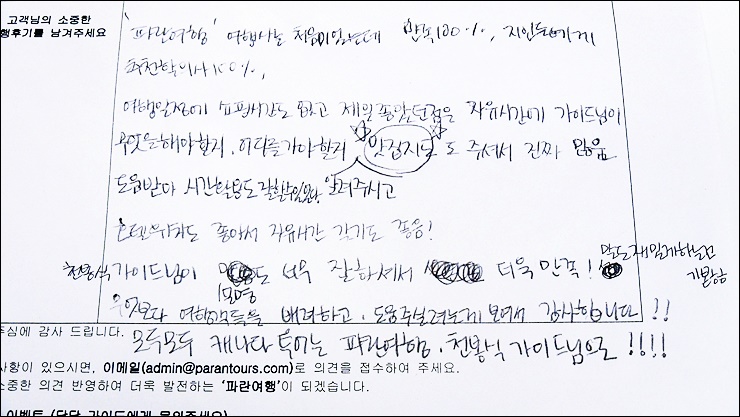 고객님의 소중한
행후기를 남겨주세요
'파란여행' 여행사는 처음이었는데 만족100%, 지인들에게
추천할의사100%,
여행일정에 쇼핑시간도 없고 제일 좋았던점은 자유시간에 가이드님이
무엇을해야할지, 어디를가야할지 맛집지도도 주셔서 진짜 많은
도움받아 시간활용도 잘할수있었다, 알려주시고
호텔위치도 좋아서 자유시간 갖기도 좋음!
천봉식가이드님이 도 너무 잘하셔서 더욱 만족! 말도재밌게하님
운영 기분상승
무엇보다 여행객들을 배려하고, 도움주실려는게 보여서 감사합니다!!
모두모두 캐나다 투어는 파란여행, 천봉식가이드님으로!!!!
주심에 감사 드립니다.
사항이 있으시면, 이메일(admin@parantours.com)로 의견을 접수하여 주세요.
소중한 의견 반영하여 더욱 발전하는 '파란여행'이 되겠습니다.
이벤트 (담당 가이드에게 문의주세요)